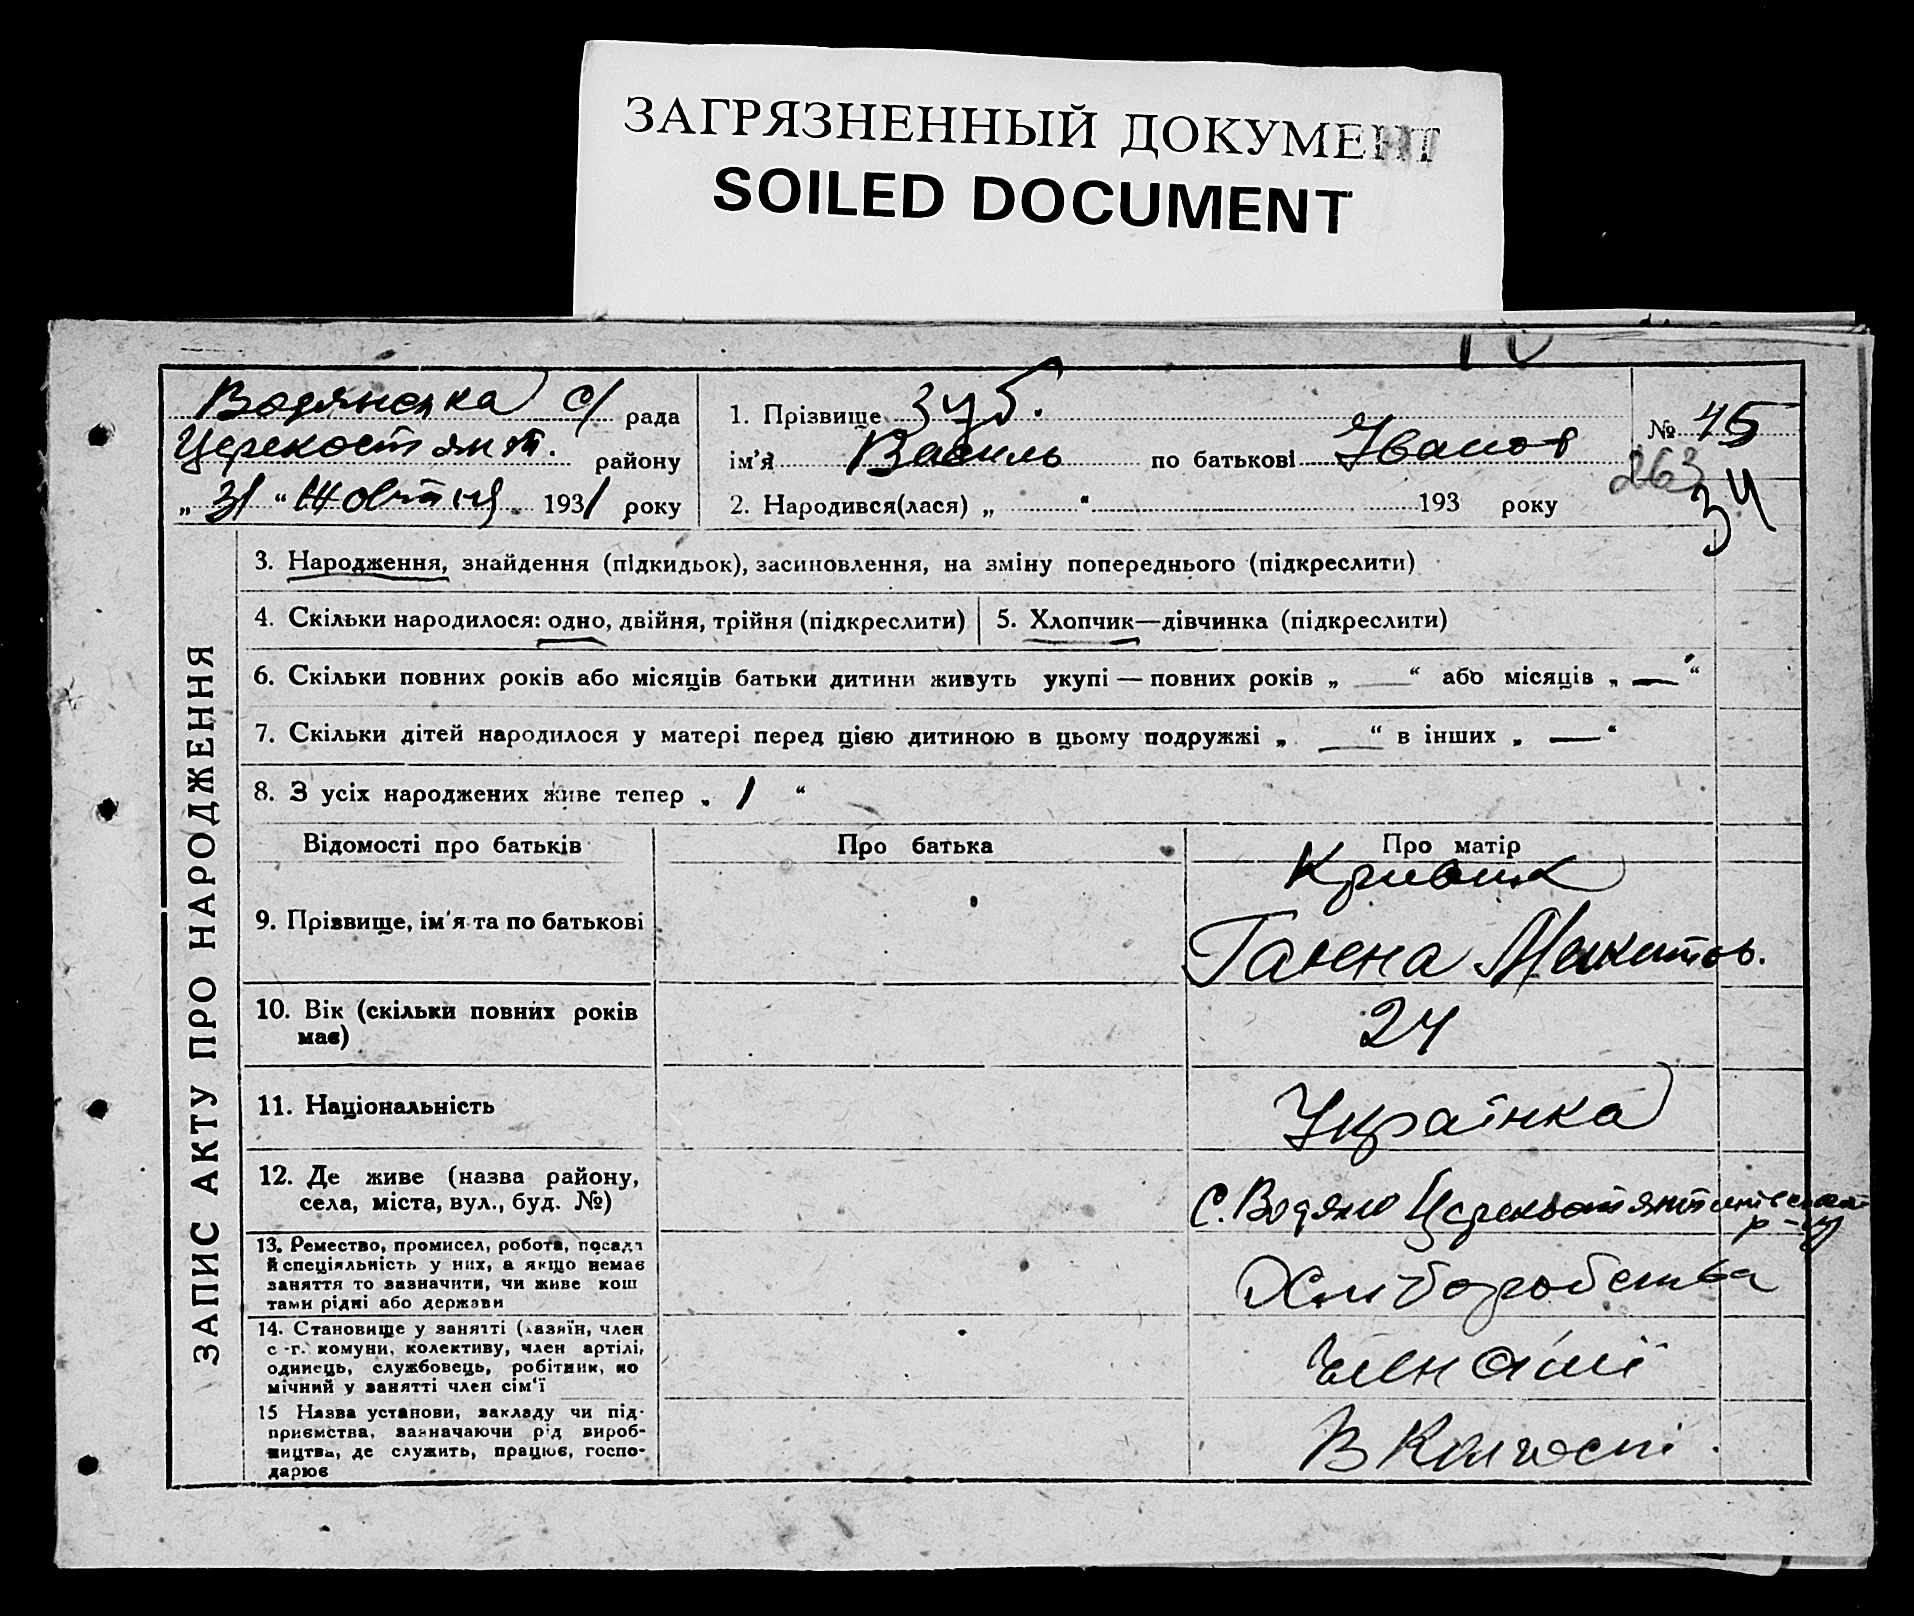 ЗАГРЯЗНЕННЫЙ ДОКУМЕНТ
SOILED DOCUMENT
Водянська с/ рада
Церекостянт. району
„ 31 “ Жовтня . 1931 року
1. Прізвище Зуб.
ім'я Василь по батькові Іванов
2. Народився(лася) „ “ 193 року
№ 45
263
34
ЗАПИС АКТУ ПРО НАРОДЖЕННЯ
3. Народження, знайдення (підкидьок), засиновлення, на зміну попереднього (підкреслити)
4. Скільки народилося: одно, двійня, трійня (підкреслити)
5. Хлопчик—дівчинка (підкреслити)
6. Скільки повних років або місяців батьки дитини живуть укупі — повних років „ — “ або місяців „ — “
7. Скільки дітей народилося у матері перед цією дитиною в цьому подружжі „ — “ в інших „ — “
8. З усіх народжених живе тепер „ 1 “
Відомості про батьків Про батька Про матір
9. Прізвище, ім'я та по батькові
Кривик
Ганна Микитов.
10. Вік (скільки повних років
має)
24
11. Національність
Українка
12. Де живе (назва району,
села, міста, вул., буд. №)
С. Водяно
р-ну
13. Ремество, промисел, робота, посада
й спеціяльність у них, а якщо немає
заняття то зазначити, чи живе кош
тами рідні або держави
Хліборобства
14. Становище у занятті (хазяїн, член
с.-г. комуни, колективу, член артілі,
одинець, службовець, робітник, по
мічний у занятті член сім'ї
член сімї
15 Назва установи, закладу чи під-
приємства, зазначаючи рід вироб-
ництва, де служить, працює, госпо-
дарює
В Колгоспі.